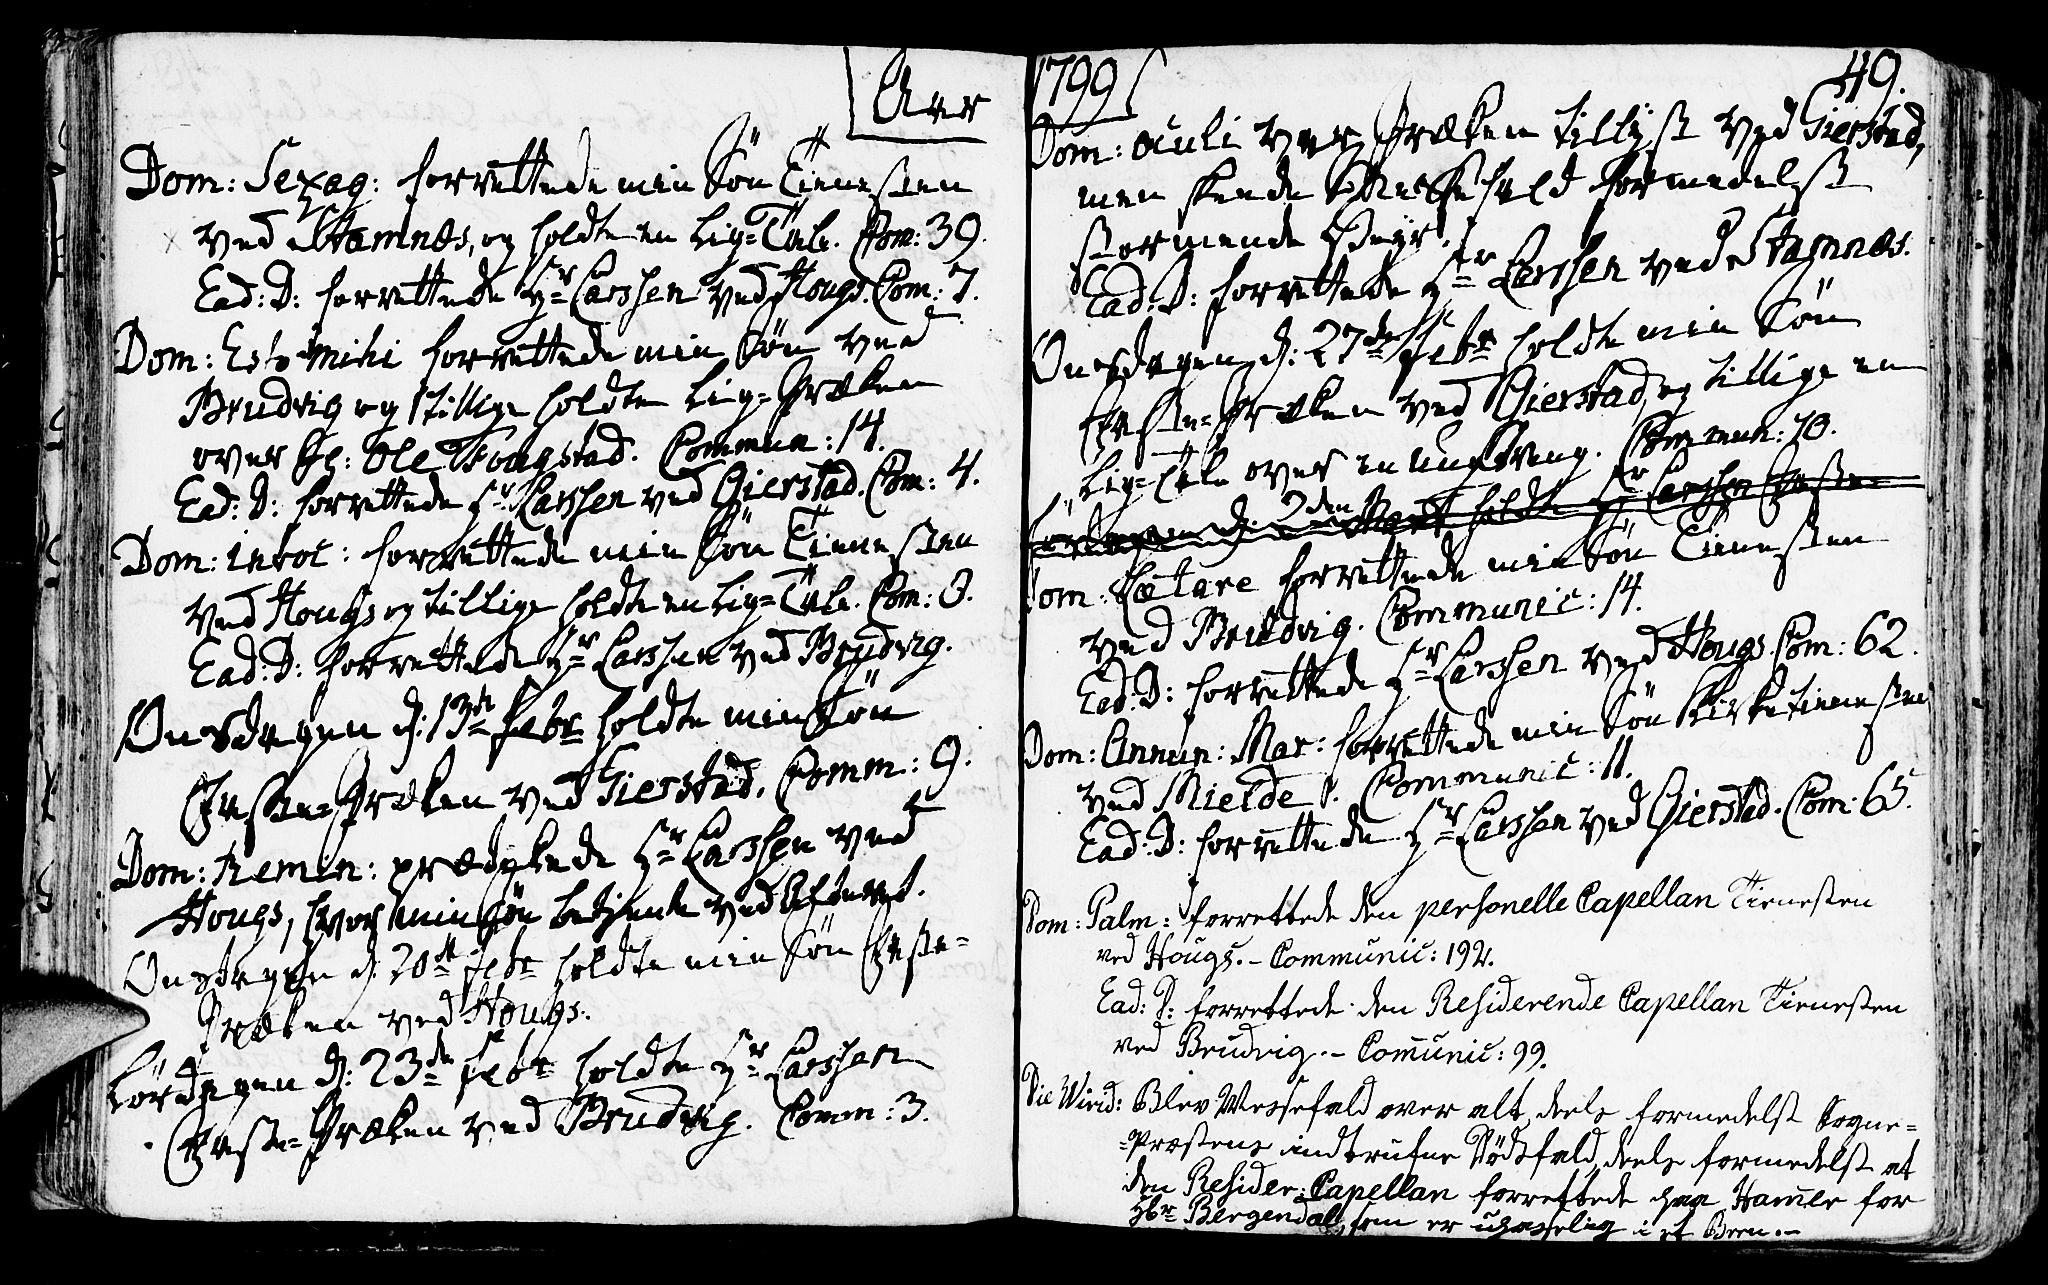 Aar
Dom: Sexag: forrettede min Søn Tienesten
ved Stamnæs, og holdte en Lig=Tale. Com: 39.
Ead: D: forrettede Hr Larssen ved Hougs. Com: 7.
Dom: Esto mihi forrettede min Søn ved
Brudvig og tillige holdte Lig=Præken
over Ole Fougstad. Commun: 14.
Ead: D: forrettede Hr Larssen ved Gierstad. Com: 4.
Dom: invoc: forrettede min Søn Tienesten
ved Hougs og tillige holdte en Lig=Tale. Com: 0.
Ead: D: forrettede Hr Larssen ved Brudvig.
Onsdagen d: 13de Febr holdte min Søn
Faste=Præken ved Gierstad. Comm: 9.
Dom: Remin: prædikede Hr Larssen ved
Hougs, hvor min Søn betiente ved Alteret.
Onsdagen d: 20de Febr holdte min Søn Faste=
Præken ved Hougs.
Lördagen d: 23de Febr holdte Hr Larssen
Faste=Præken ved Brudvig. Comm: 3.
1799
49.
Dom: oculi var Præken tillyst ved Gierstad,
men skeede Messefald formedelst
stormende Veyr.
Ead: D: forrettede Hr Larssen ved Stamnæs.
Onsdagen d: 27de Febr holdte min Søn
Faste=Præken ved Gierstad, og tillige en
Lig=Tale over en ung Dreng. Commun: 70.
Lördagen d: 2den Mart holdte Hr Larssen Faste=
Dom: Lætare forrettede min Søn Tienesten
ved Brudvig. Communic: 14.
Ead: D: forrettede Hr Larssen ved Hougs. Com: 62.
Dom: Annun: Mar: forrettede min Søn Kirketienesten
ved Mielde. Communic: 11.
Ead: D: forrettede Hr Larssen ved Gierstad. Com: 65.
Dom: Palm: forrettede den personelle Capellan Tienesten
ved Hougs. - Communic: 192.
Ead: D: forrettede den Residerende Capellan Tienesten
ved Brudvig. - Comunic: 99.
Die Virid: Blev Messefald over alt, deels formedelst Sogne=
=Præstens indtrufne Dödsfald, deels formedelst at
den Resider: Capellan forrettede paa Hamre for
Hr Bergendal, som er upasselig i et Been. -